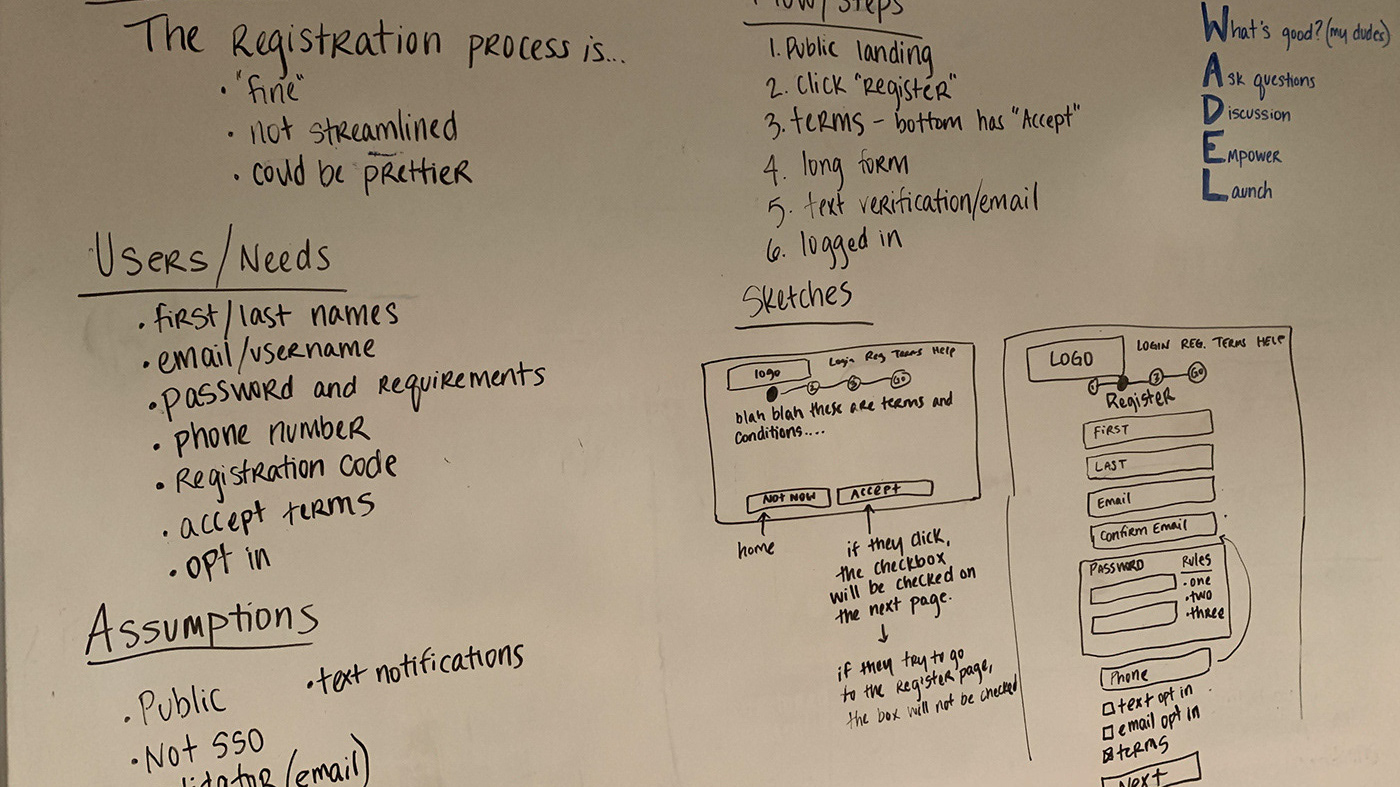 The Registration process is...
• "fine"
• not streamlined
• could be prettier
Users/Needs
• first/last names
• email/username
• password and requirements
• phone number
• Registration code
• accept terms
• opt in
Assumptions
• Public
• text notifications
• Not SSO
(email)
Flow/Steps
1. Public landing
2. click "Register"
3. terms - bottom has "Accept"
4. long form
5. text verification/email
6. logged in
Sketches
logo
Login Reg Terms Help
2 3 GO
blah blah these are terms and
conditions....
NOT NOW
ACCEPT
home
if they click,
the checkbox
will be checked on
the next page.
if they try to go
to the Register page,
the box will not be checked
LOGO
LOGIN REG. TERMS HELP
1 3 GO
Register
FIRST
LAST
Email
Confirm Email
PASSWORD
Rules
• one
• two
• three
Phone
text opt in
email opt in
terms
Next
What's good? (my dudes)
Ask questions
Discussion
Empower
Launch